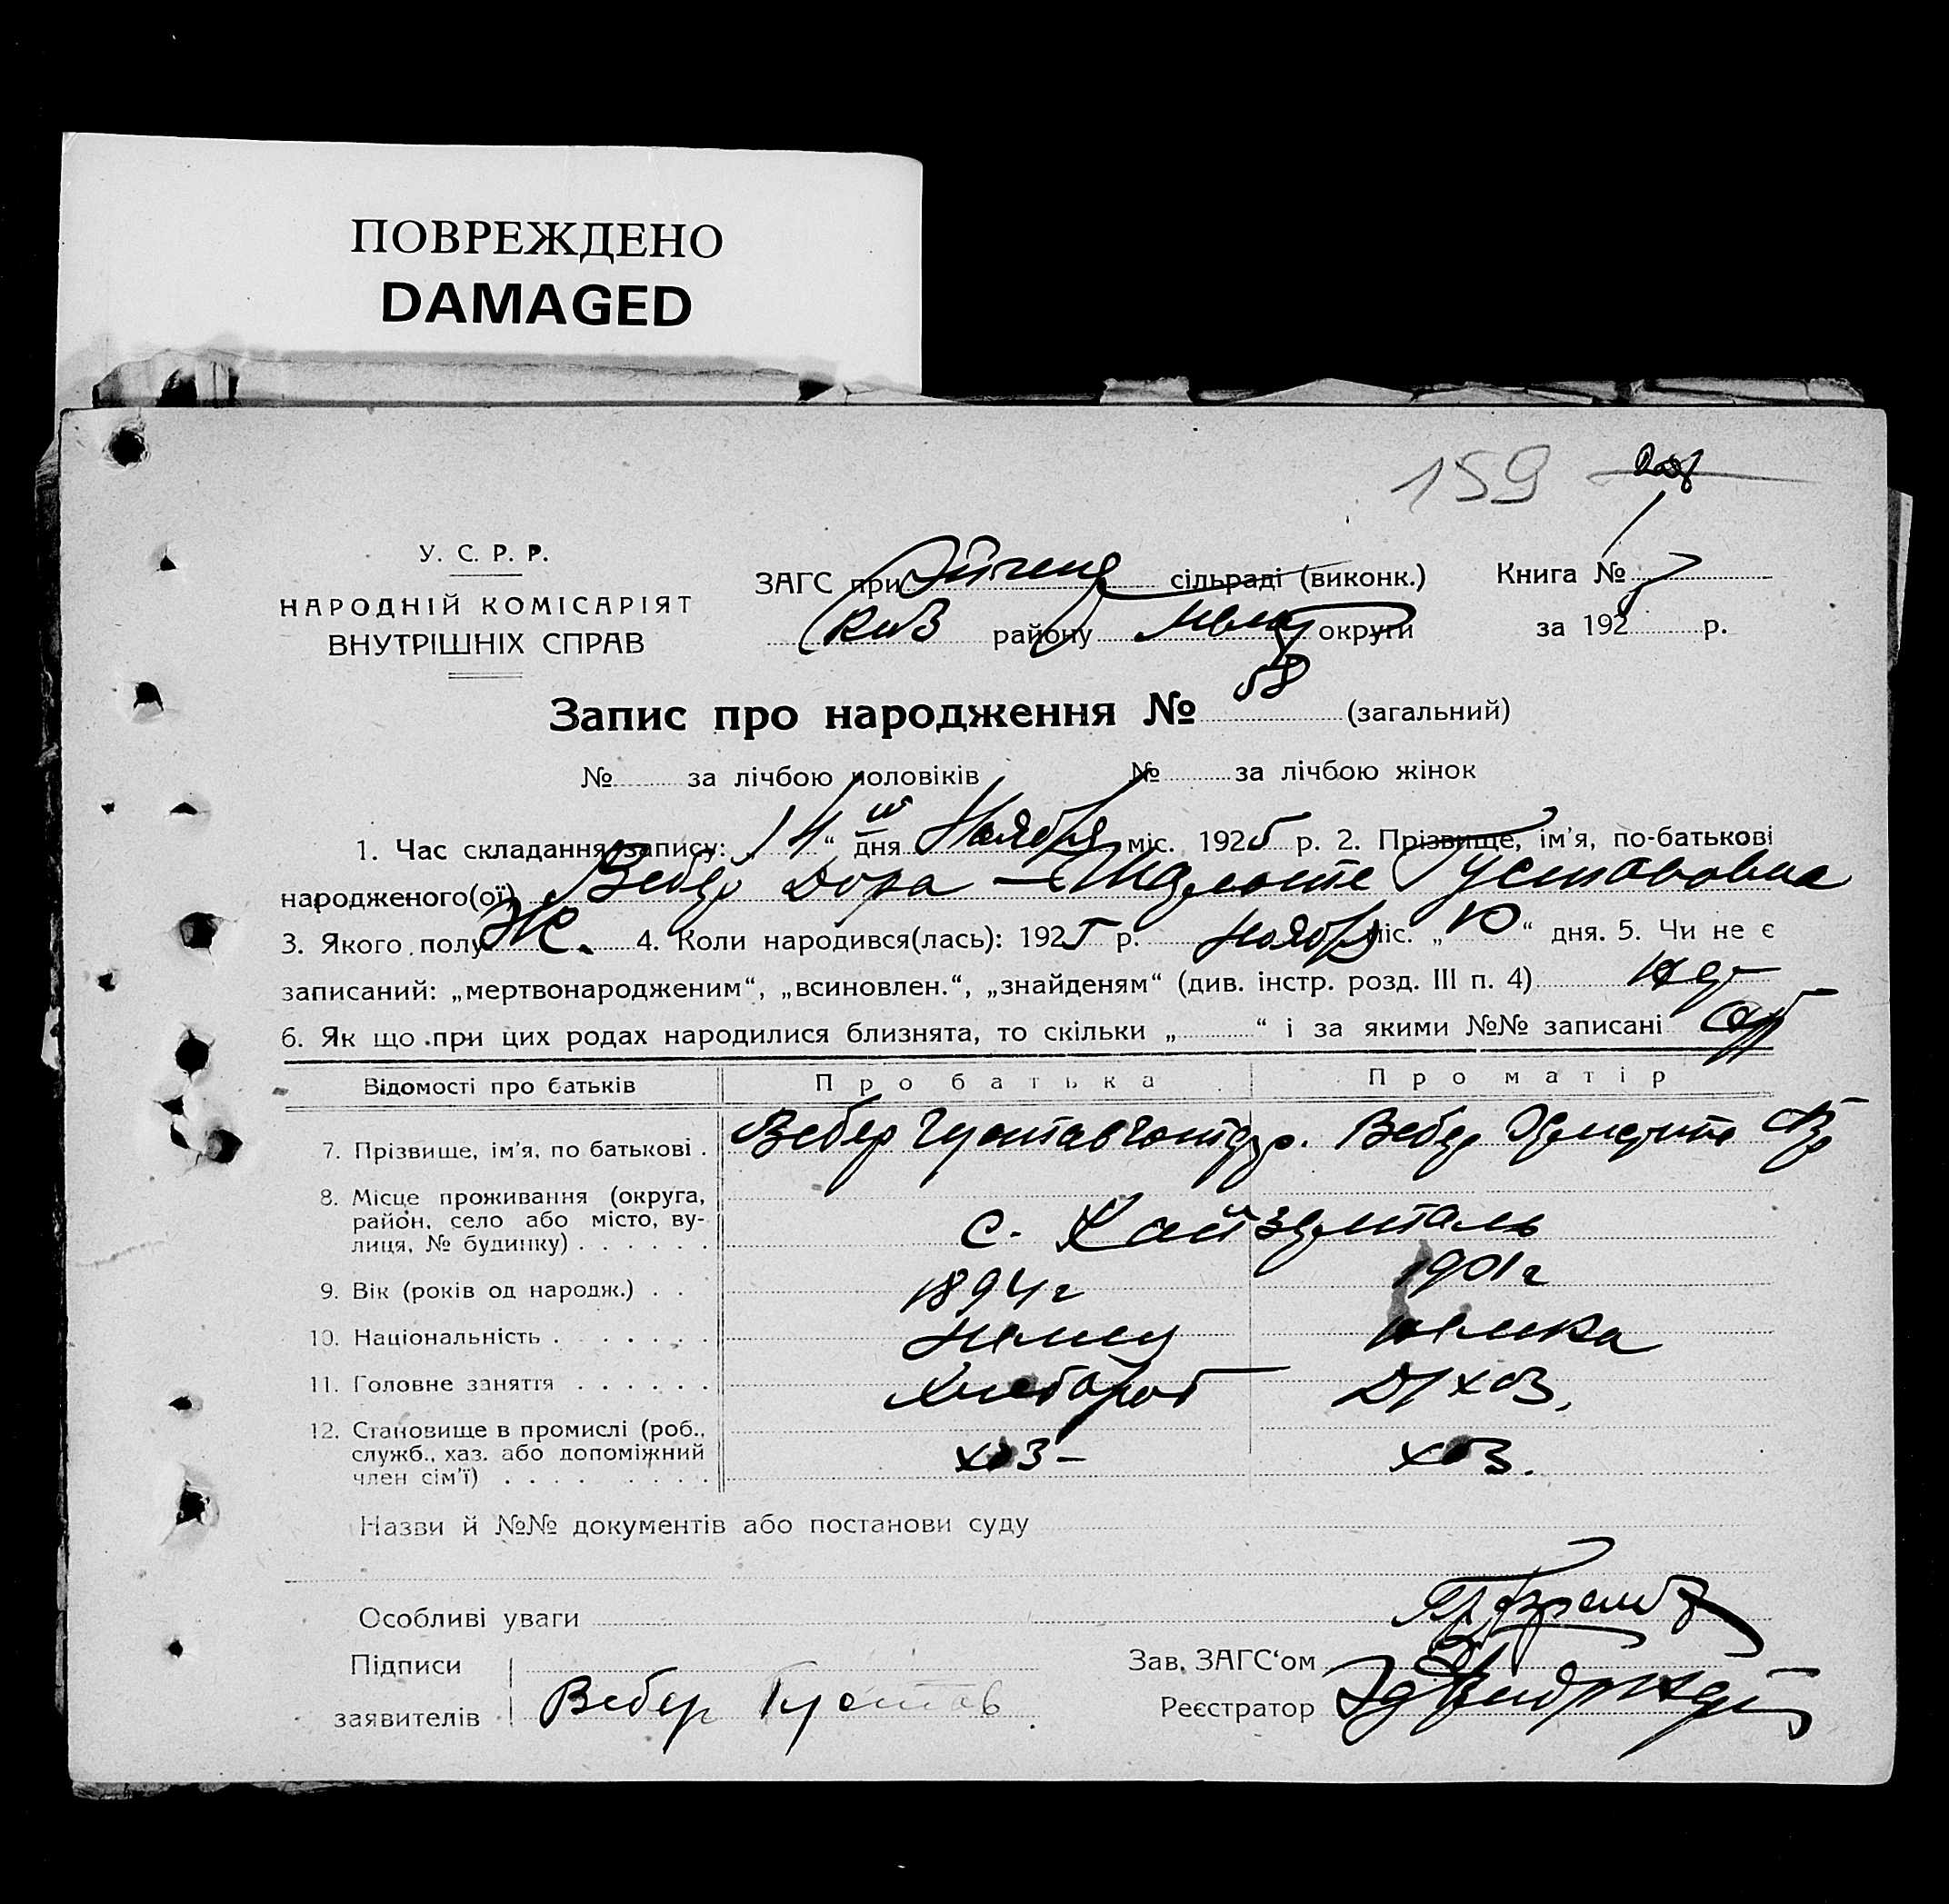 ПОВРЕЖДЕНО
DAMAGED
159
У. С. Р. Р.
НАРОДНІЙ КОМІСАРІЯТ
ВНУТРІШНІХ СПРАВ
ЗАГС при сільраді (виконк.) Книга №
району округи за 192 р.
Запис про народження № 58 (загальний)
№ за лічбою чоловіків № за лічбою жінок
1. Час складання запису: „14“ дня Ноября міс. 1925 р. 2. Прізвище, ім'я, по-батькові
народженого(ої) Вебер Дора – Густавовна
3. Якого полу Ж. 4. Коли народився(лась): 1925 р. Ноября міс. „10“ дня. 5. Чи не є
записаний: „мертвонародженим“, „всиновлен.“, „знайденям“ (див. інстр. розд. III п. 4) нет
6. Як що при цих родах народилися близнята, то скільки „ “ і за якими №№ записані
Відомості про батьків Про батька Про матір
7. Прізвище, ім'я, по батькові . Вебер Густав Вебер
8. Місце проживання (округа,
район, село або місто, ву-
лиця, № будинку) . . . . . . с. Кайзерталь
9. Вік (років од народж.) . . 1894г 1901г
10. Національність . . . . . . . немец немка
11. Головне заняття . . . . . . Хлебороб Д/хоз.
12. Становище в промислі (роб.,
служб., хаз. або допоміжний
член сім'ї) . . . . . . . . . хоз– хоз.
Назви й №№ документів або постанови суду
Особливі уваги
Підписи Зав. ЗАГС‘ом
заявителів Вебер Густав Реєстратор